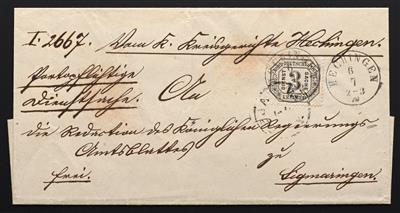 I. 2667. Vom K. Kreisgerichte Hechingen.
Portopflichtige
Dienstsache. An
HECHINGEN
6
7
2-3
die Redaction des Königlichen Regierungs-
Amtsblattes
zu
frei. Sigmaringen.